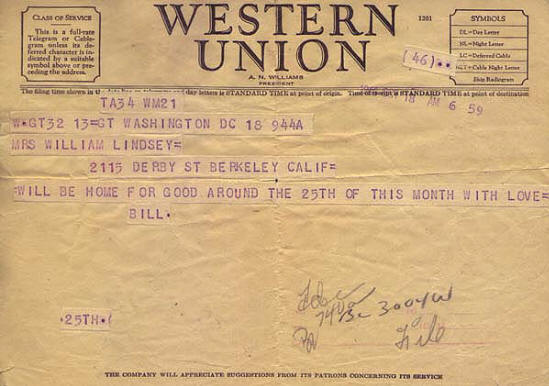 CLASS OF SERVICE
This is a full-rate
Telegram or Cable-
gram unless its de-
ferred character is in-
dicated by a suitable
symbol above or pre-
ceding the address.
WESTERN
UNION
A. N. WILLIAMS
PRESIDENT
1201
SYMBOLS
DL=Day Letter
NL=Night Letter
LC=Deferred Cable
NLT=Cable Night Letter
Ship Radiogram
(46)
The filing time shown in the date line on telegrams and day letters is STANDARD TIME at point of origin. Time of receipt is STANDARD TIME at point of destination
18 AM 6 59
TA34 WM21
W.GT32 13=GT WASHINGTON DC 18 944A
MRS WILLIAM LINDSEY=
2115 DERBY ST BERKELEY CALIF=
=WILL BE HOME FOR GOOD AROUND THE 25TH OF THIS MONTH WITH LOVE=
BILL.
.25TH.(
File
THE COMPANY WILL APPRECIATE SUGGESTIONS FROM ITS PATRONS CONCERNING ITS SERVICE